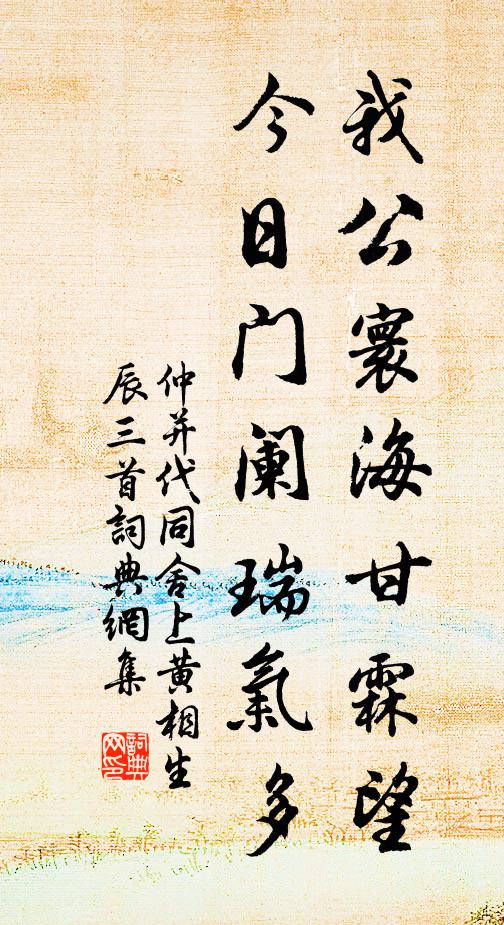 我公寰海甘霖望
今日門阑瑞氣多
仲并代同舍上黄相生
辰三首詞典網集
詞典网印